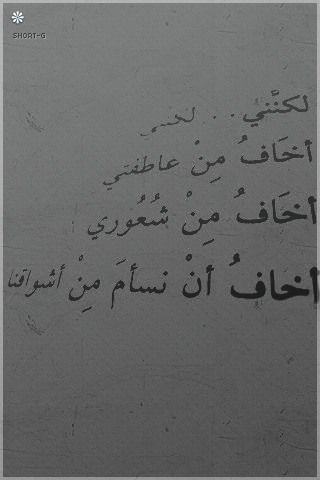 SHORT-G
لكنَّني . . لكنني
أخَافُ مِنْ عاطفتي
أخَافُ مِنْ شُعُوري
أخافُ أنْ نسأمَ مِنْ أشواقنا